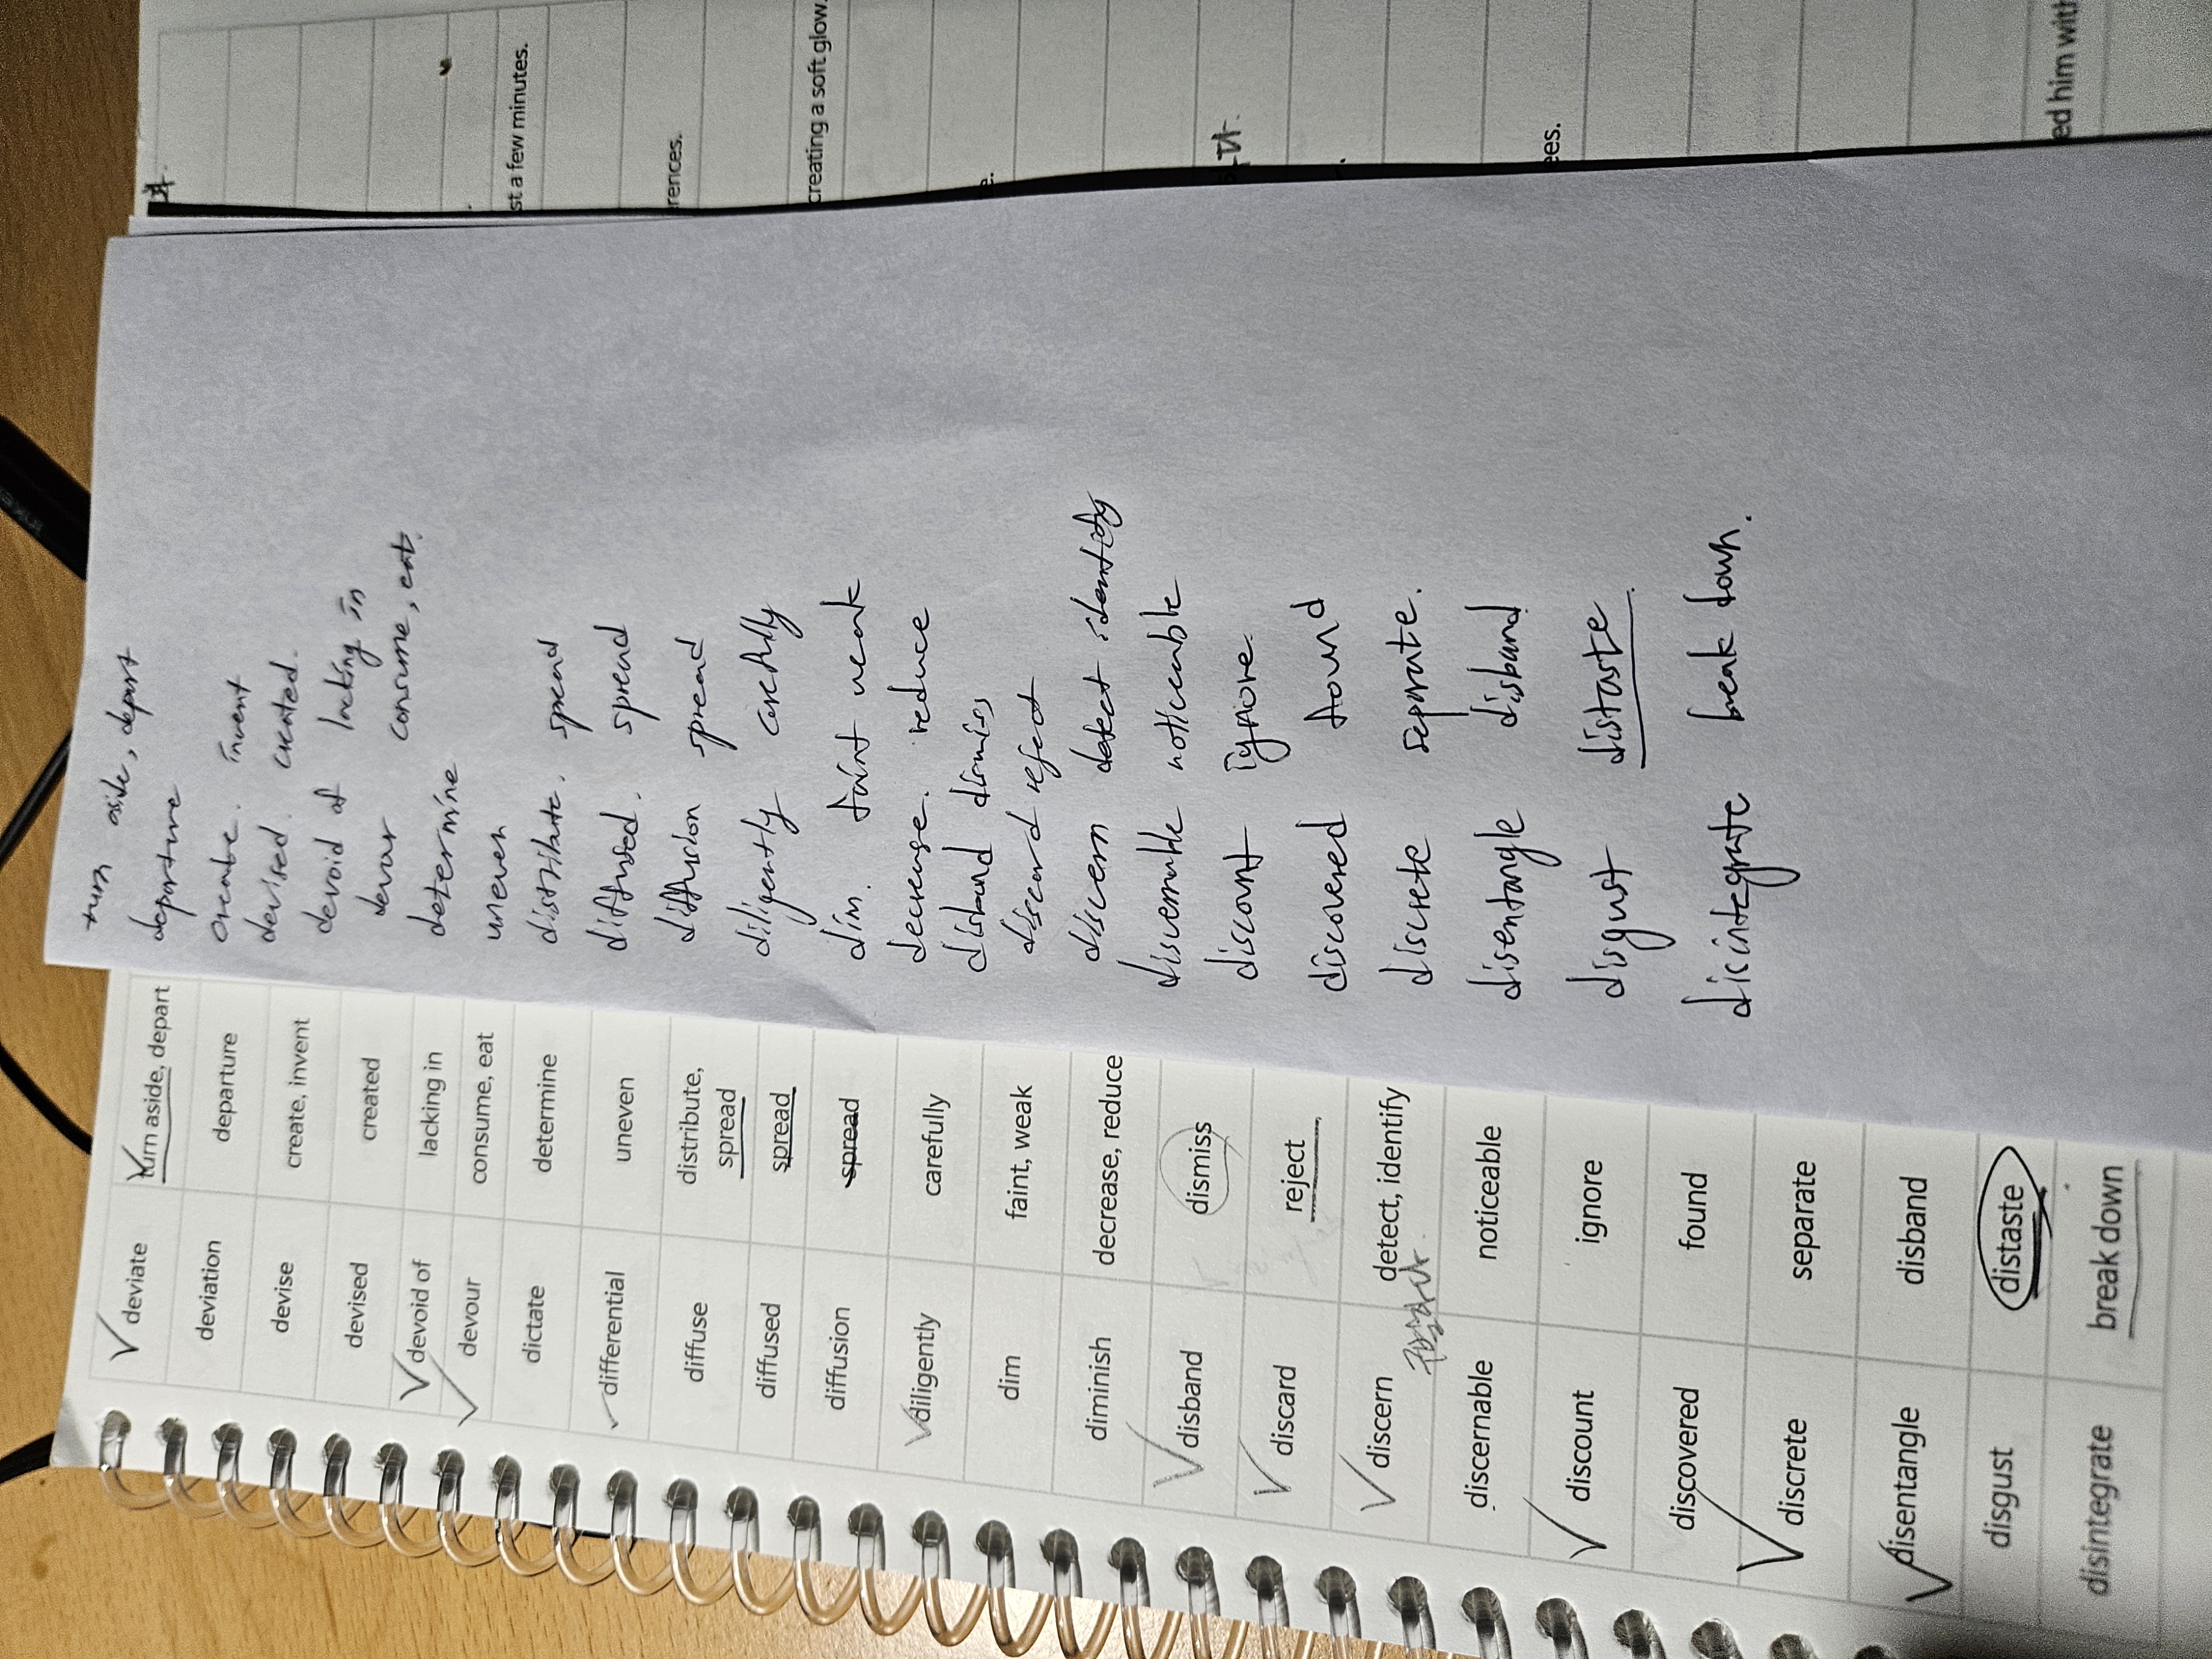 deviate turn aside, depart
deviation departure
devise create, invent
devised created
devoid of lacking in
devour consume, eat
dictate determine
differential uneven
diffuse distribute,
spread
diffused spread
diffusion spread
diligently carefully
dim faint, weak
diminish decrease, reduce
disband dismiss
discard reject
discern detect, identify
discernable noticeable
discount ignore
discovered found
discrete separate
disentangle disband
disgust distaste
disintegrate break down
turn aside, depart
departure
create. invent
devised. created.
devoid of lacking in
devour consume, eat.
determine
uneven
distribute. spread
diffused. spread
diffusion spread
diligently carefully
dim. faint weak
decrease. reduce
disband dismiss
discard reject
discern detect identify
discernable noticeable
discount ignore
discovered found
discrete separate.
disentangle disband
disgust distaste
disintegrate break down.
st a few minutes.
rences.
creating a soft glow.
e.
ees.
ed him with